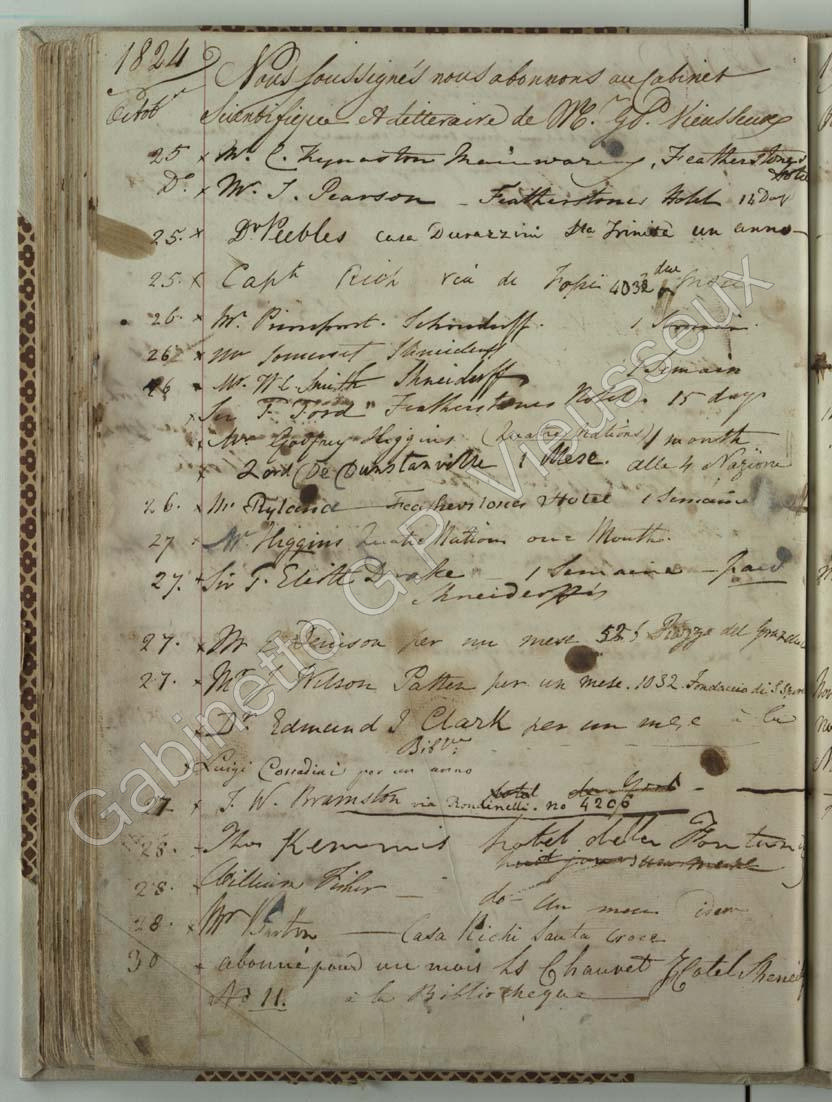 1824
Nous soussignés nous abonnons au Cabinet
Octobre Scientifique et litteraire de Mr. G P. Vieusseux
25 x Mr. C. Kynaston Mainwaring, Featherstones Hotel
Do x Mr. J. Pearson - Featherstones Hotel 14 Days
25. x Dr Peebles casa Durazzini Sta Trinita un anno
25. x Capt Rich via de 4032 due
26 x Mr. Schneidorff. 1
26 x Mr Somerset Shneiders
26 x Mr. W. C. Smith Shneidorffs 1 Semain
Sir F. Ford Featherstones Hotel. 15 days
x Mr Godfrey Higgins (Quatre Nations) 1 month
x Lord De Dunstanville 1 Mese. alle 4 Nazione
26. x Mr Ryland Featherstones Hotel 1 Semaine
27 x Mr Higgins Quatre Nations one Month.
27. x Sir T. Eliott Drake - 1 Semaine - paid
Shneiderffs
27. x Mr Denison per un mese Piazza del
27. x Mr Wilson Patten per un mese. 1032 Fondaccio di S.
x Dr. Edmund J Clark per un mese à la
x Luigi per un anno
27. x J. W. Bramston via Rondinelli. no 4206
28. Thos Kemmis hotel della Fontana
28. William Fisher - do un mese idem
28. x Mr Burton - Casa Richi Santa Croce
30 x abonné pour un mois Ls Chauvet Hotel
No 11. à la Bibliothèque
Gabinetto G.P. Vieusseux